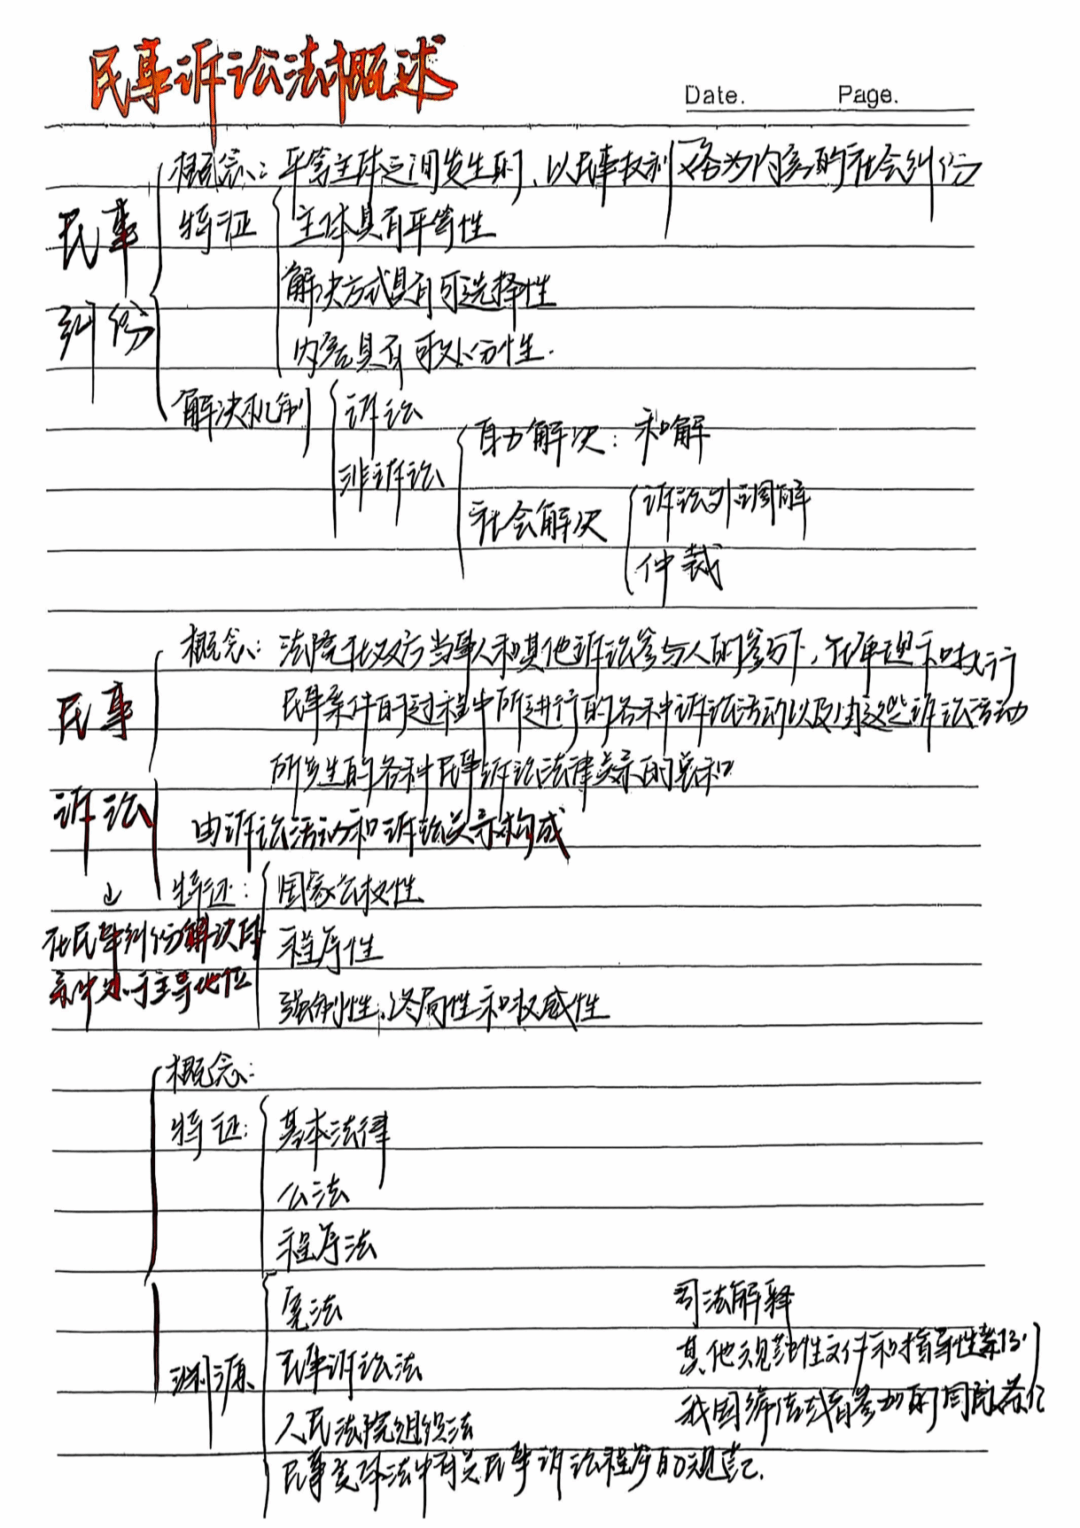 民事诉讼法概述
Date. Page.
概念：平等主体之间发生的、以民事权利义务为内容的社会纠纷
民事
纠纷
特征
主体具有平等性
解决方式具有可选择性
内容具有可处分性.
解决机制
诉讼
非诉讼
自力解决：和解
社会解决
诉讼外调解
仲裁
概念：法院在双方当事人和其他诉讼参与人的参与下，在审理和执行
民事案件的过程中所进行的各种诉讼活动以及由这些诉讼活动
所产生的各种民事诉讼法律关系的总和
民事
诉讼
由诉讼活动和诉讼关系构成
↓
在民事纠纷解决体
系中处于主导地位
特征：
国家公权性
程序性
强制性、终局性和权威性
概念：
特征：
基本法律
公法
程序法
渊源
宪法
民事诉讼法
人民法院组织法
民事实体法中有关民事诉讼程序的规范.
司法解释
其他规范性文件和指导性案例
我国缔结或者参加的国际条约